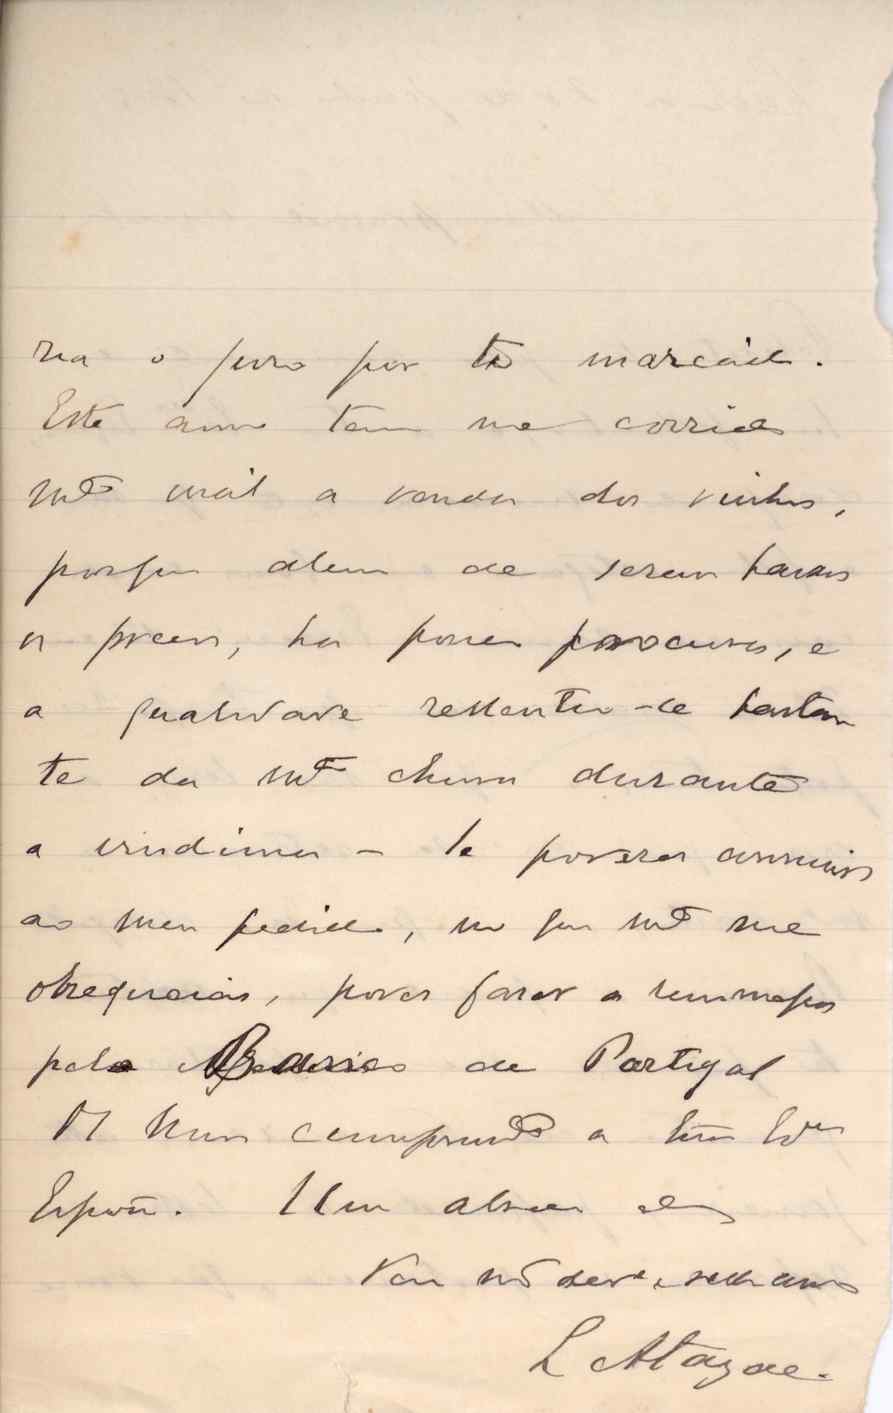 ria o juro por ti marcado.
Este anno tem me corrido
mto mal a venda dos vinhos,
porque alem de serem baixos
os preços, ha pouca procura, e
a qualidade ressentiu-se bastan
te da mta chuva durante
a vindima - Se poderes
ao meu pedido, no que mto me
obsequeias, podes fazer a remessa
pelo Banco de Portugal
Os meus cumprimtos a tua
Espoza. Um abraço do
Teu mto
L Atayde.